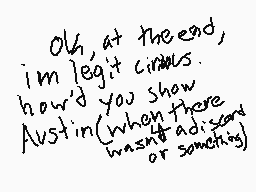 Ohh, at the end,
im legit cirious.
how'd you show
Austin(when there
wasn't a discord
or something)